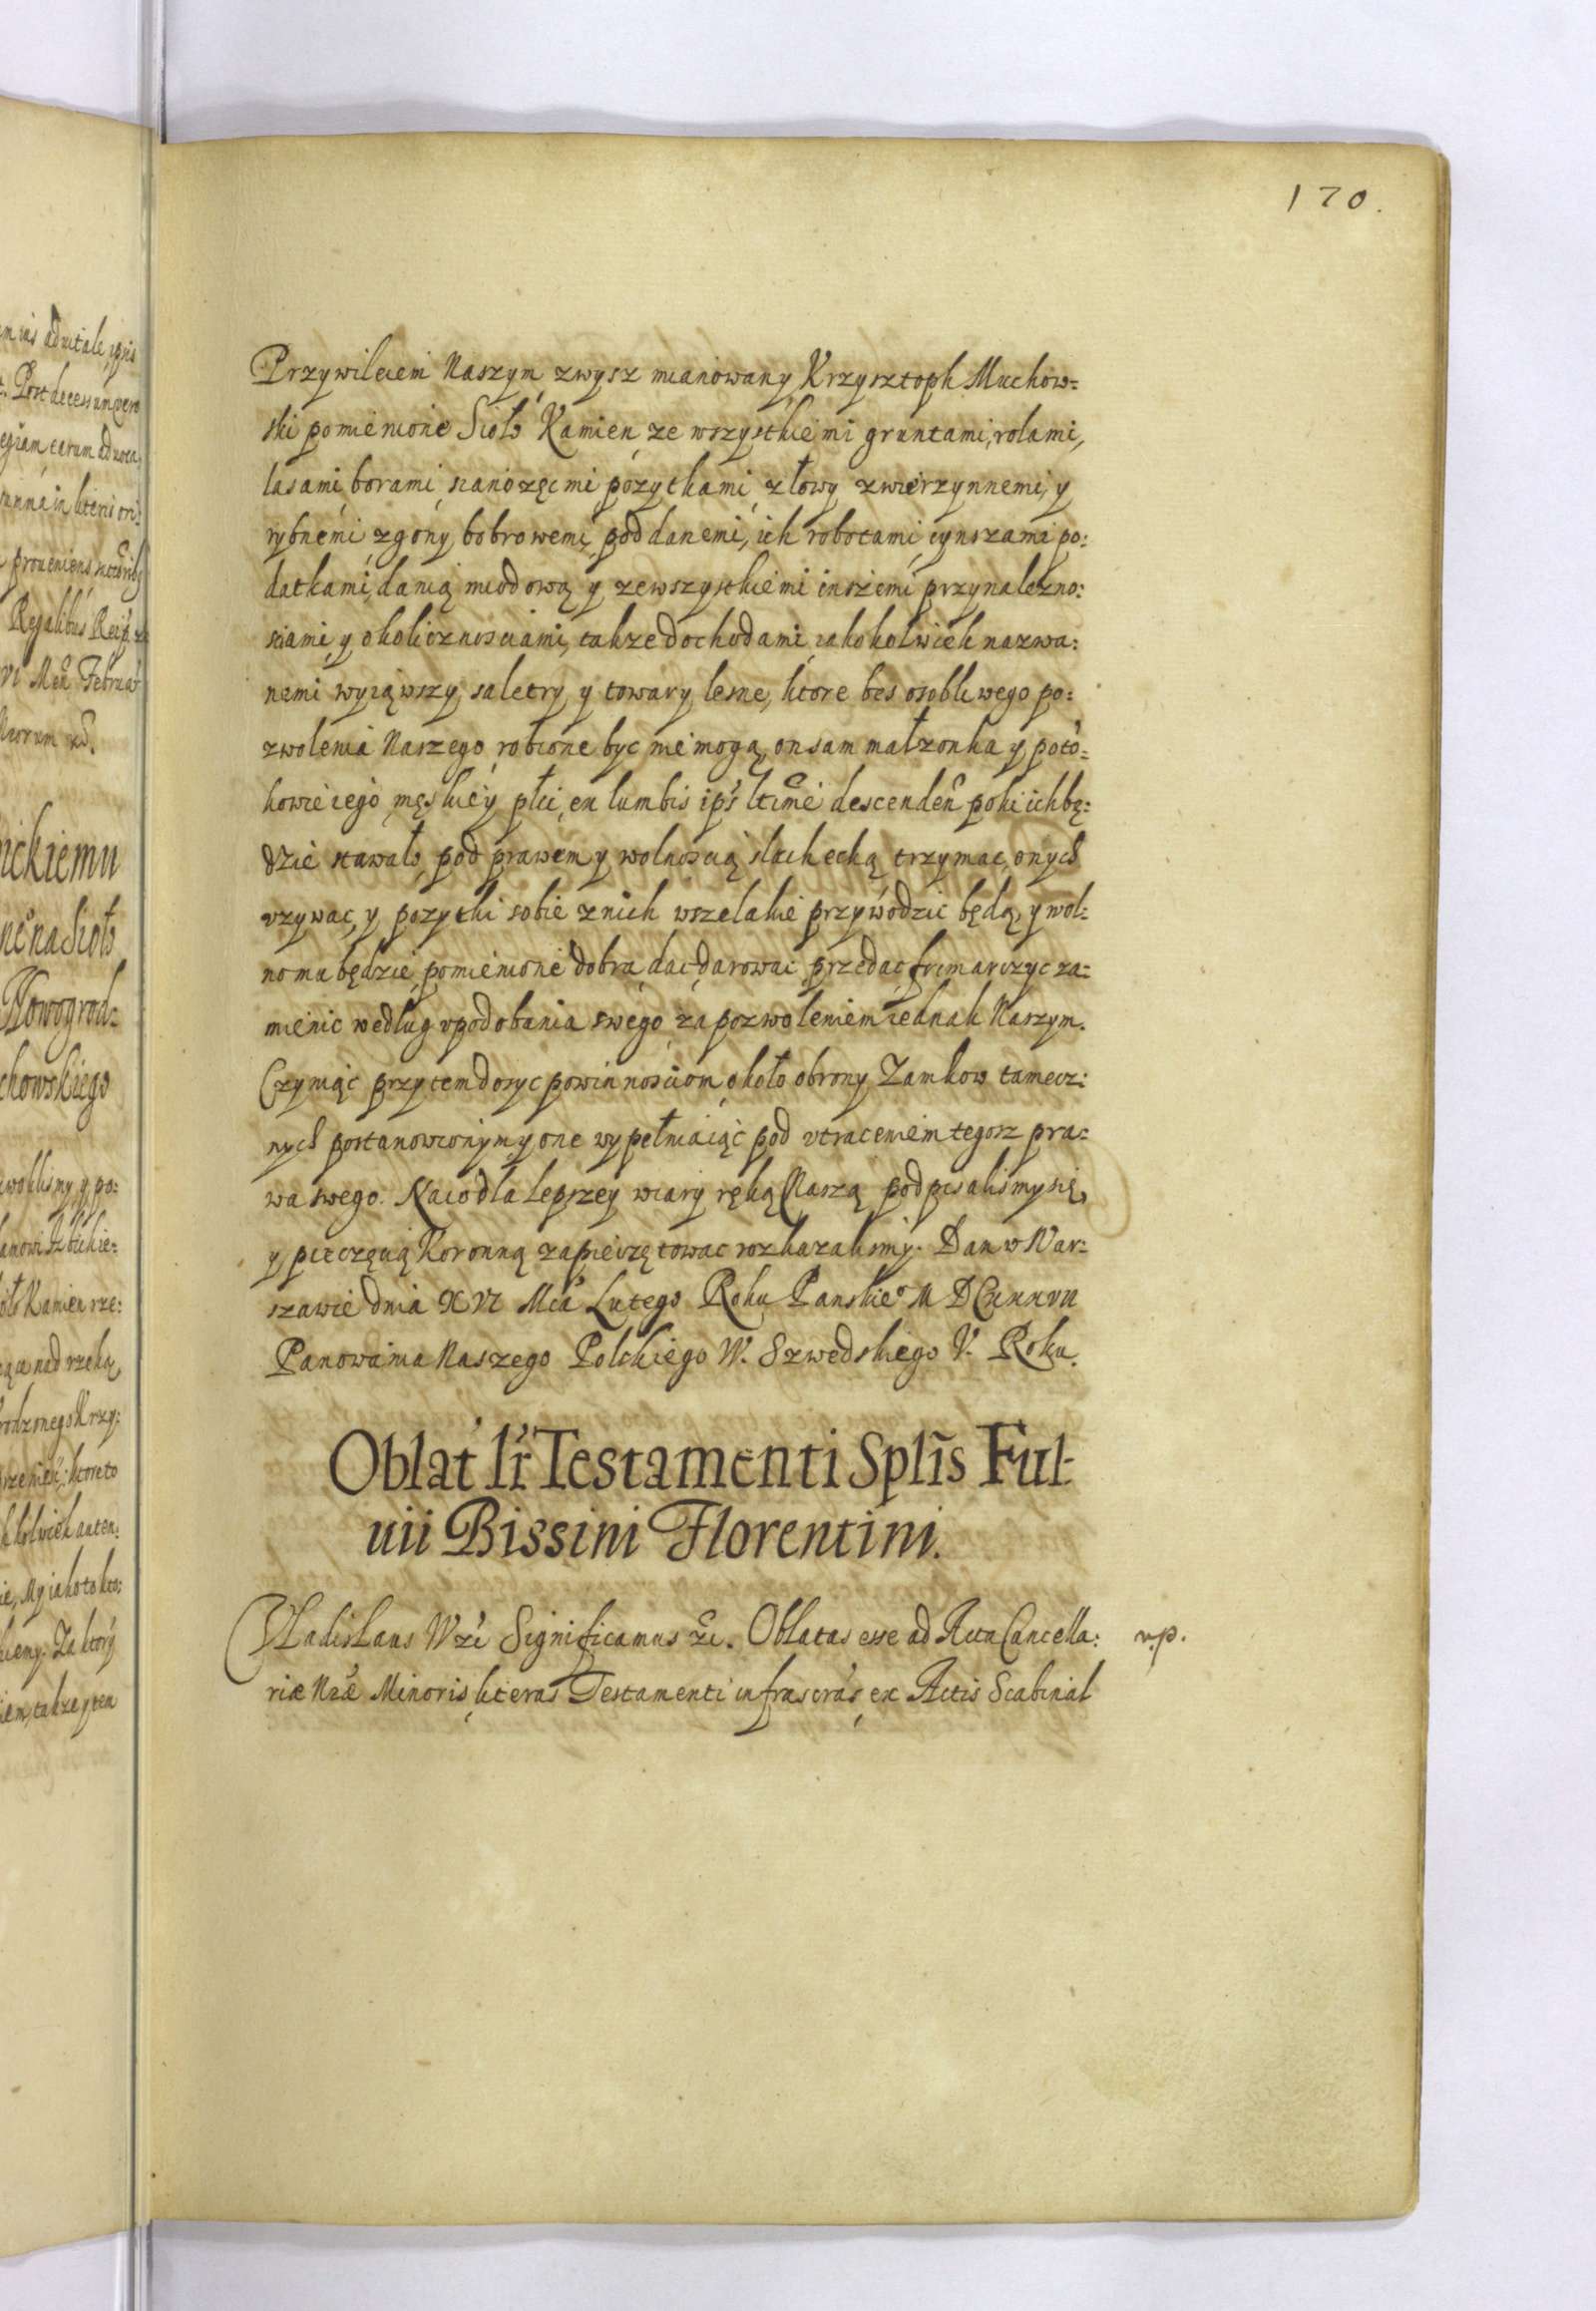 170.
Przywileiem Naszym zwysz mianowany Krzysztoph Muchow=
ski pomienione Sioło Kamien ze wszystkiemi gruntami, rolami,
lasami borami, sianożęcmi pozytkami z łowy zwierzynnemi, y
rybnemi zgony bobrowemi, poddanemi, ich robotami cynszami po:
datkami, danią miodową y zewszystkiemi inszemi przynalezno:
sciami y okolicznosciami, takze dochodami iakokolwiek nazwa:
nemi wyiąwszy saletry y towary lesne, ktore bes osobliwego po:
zwolenia Naszego robione byc nie mogą, on sam małzonka y poto:
kowie iego męskiey płci, ex lumbis ips ltime descenden poki ich bę:
dzie stawało, pod prawem y wolnoscią slachecką trzymac, onych
uzywac, y pozytki sobie znich wszelakie przywodzic będą, y wol:
no mu będzie pomienione dobra dac darowac przedac frimarczyc za:
mienic według upodobania swego za pozwoleniem iednak Naszym.
Czyniąc przytem dosyc powinnosciom około obrony Zamkow tamecz:
nych postanowionym, y one wypełniaiąc pod utraceniem tegosz pra:
wa swego. Na co dla lepszey wiary ręką Naszą podpisalismy się,
y pieczęcią Koronną zapieczętowac rozkazalismy. Dan w War:
szawie dnia XVI Mca Lutego Roku Panskieo MDCXXXVII
Panowania Naszego Polskiego V. Szwedskiego V. Roku.
Oblat lr Testamenti Splis Ful:
uii Bissini Florentini.
Vladislaus IV &c Significamus &c. Oblatas esse ad Acta Cancella: v.p.
riæ Nræ Minoris literas Testamenti infrascras, ex Actis Scabinal